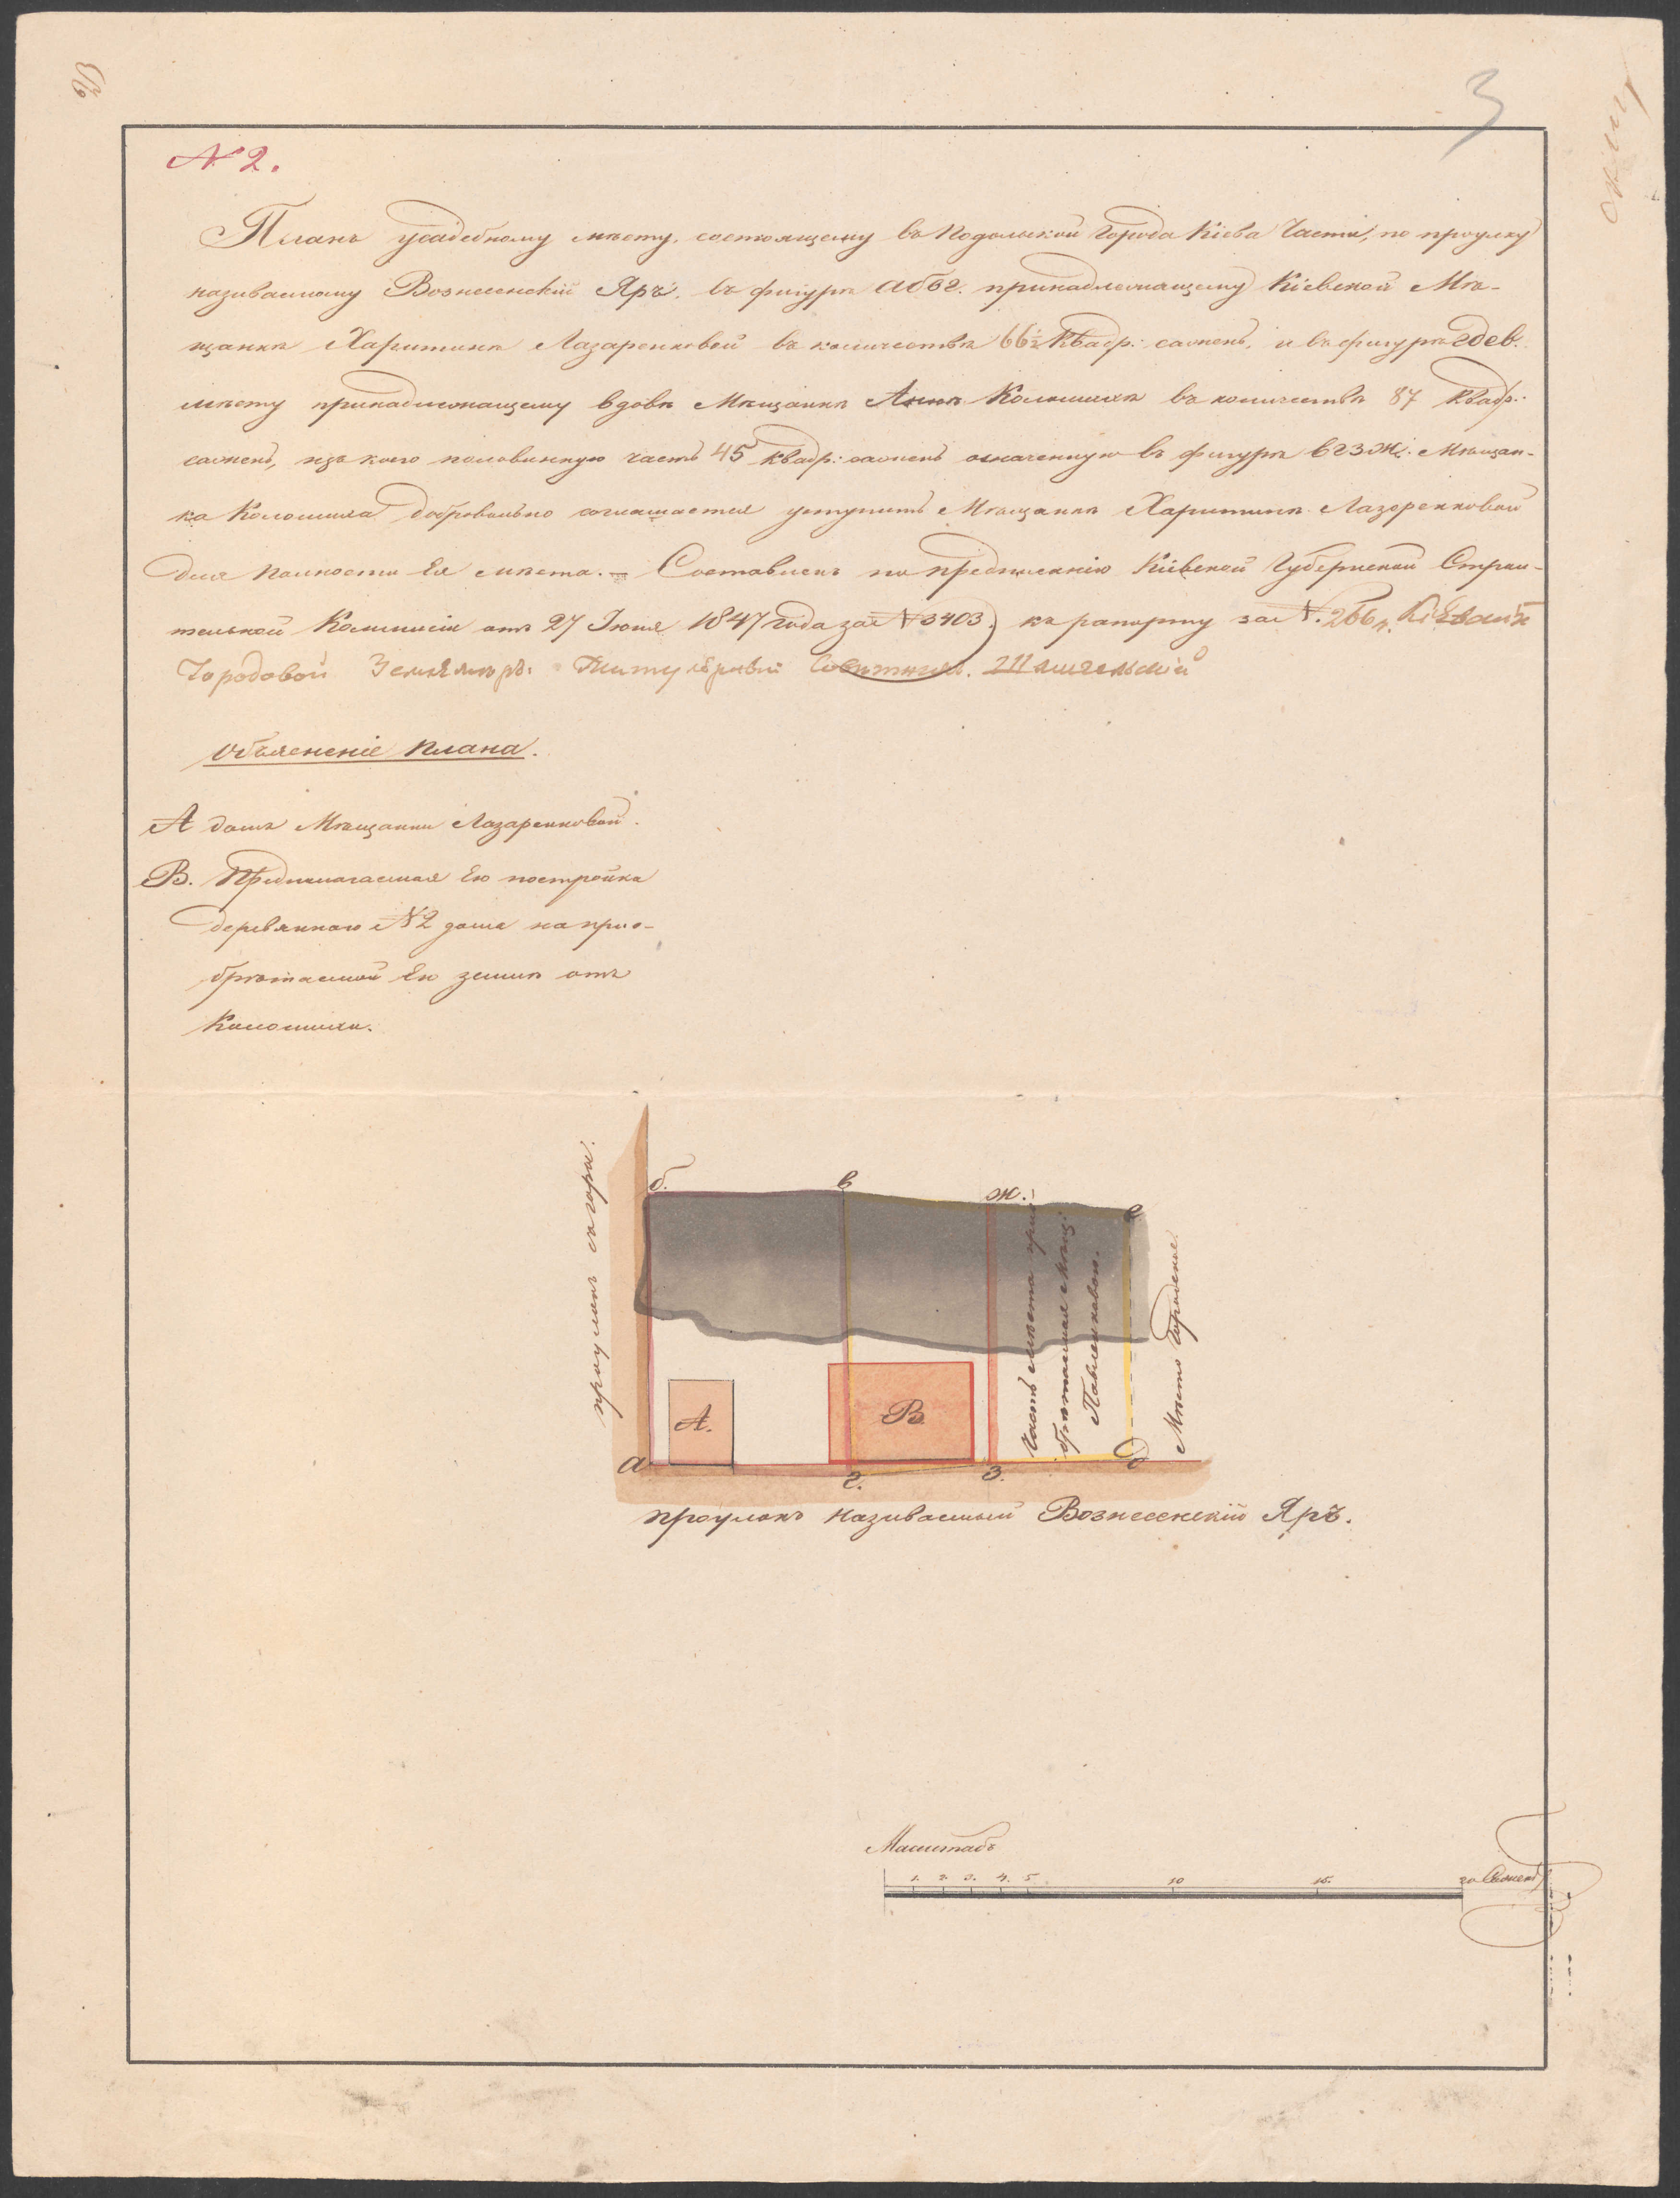 3
N 2.
Планъ усадебному мѣсту, состоящему въ Подольской города Кіева Части, по проулку
називаемому Вознесенскій Яръ, въ фигурѣ абвг. принадлежащему Кіевской Мѣ-
щанкѣ Харитинѣ Лазаренковой въ количествѣ 66½ Квадр: саженъ, и въ фигурѣ гдев.
мѣсту принадлежащему вдовѣ Мѣщанкѣ Аннѣ Коломихѣ въ количествѣ 87 Квадр:
саженъ, изъ коего половинную часть 45 квадр: саженъ означенную въ фигурѣ вгзж. Мѣщан-
ка Коломиха добровольно соглашается уступить Мѣщанкѣ Харитинѣ Лазоренковой
для полности Ея мѣста. — Составленъ по предписанію Кіевской Губернской Строи-
тельной Коммисіи отъ 27 Іюня 1847 года за N 3403. къ рапорту за N. 266. Кіевскій
Городовой Землемѣръ: Титулярный Совѣтникъ.
Объясненіе плана.
А домъ Мѣщанки Лазаренковой.
В. Предполагаемая Ею постройка
деревяннаго N2 дома на прио-
брѣтаемой Ею земли отъ
Коломихи.
проулокъ съ горы.
б.
в
ж.
е
Часть мѣста прио-
брѣтаемая Мѣщ:
Павленковою.
Мѣсто Городское.
А.
В.
а
г.
з.
д
проулокъ називаемый Вознесенскій Яръ.
Масштабъ
1. 2. 3. 4. 5 10 15. 20 Саженъ